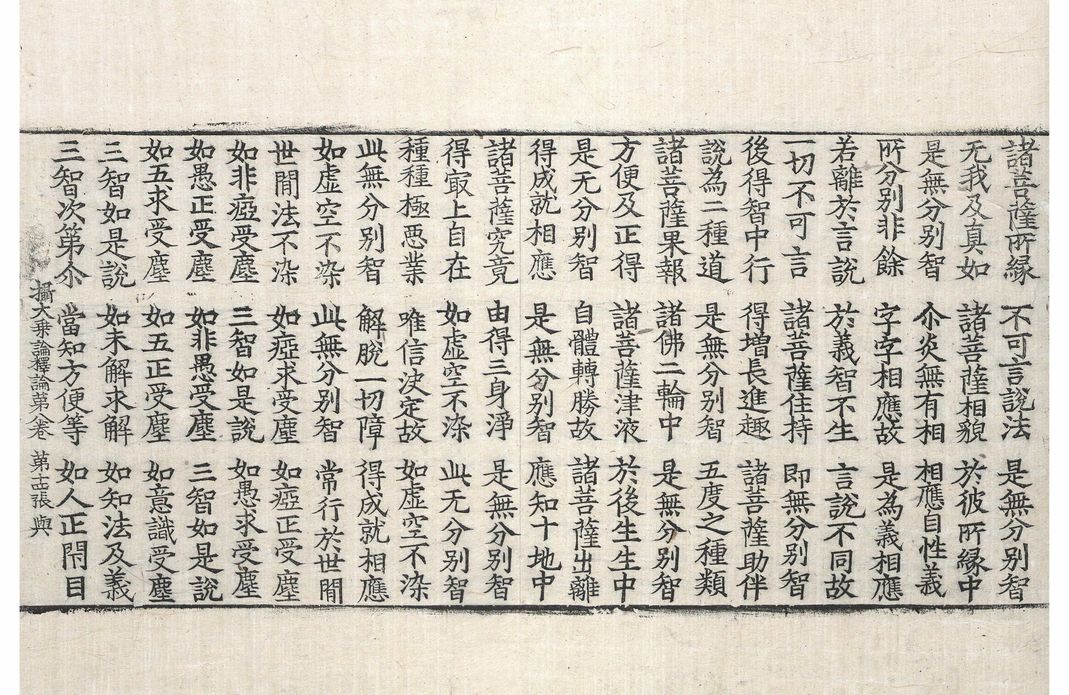 諸菩薩所縁 不可言說法 是無分别智
无我及真如 諸菩薩相貌 於彼所縁中
是無分别智 尒炎無有相 相應自性義
所分别非餘 字字相應故 是為義相應
若離於言說 於義智不生 言說不同故
一切不可言 諸菩薩住持 即無分别智
後得智中行 得增長進趣 諸菩薩助伴
說為二種道 是無分别智 五度之種類
諸菩薩果報 諸佛二輪中 是無分别智
方便及正得 諸菩薩津液 於後生生中
是无分别智 自體轉勝故 諸菩薩出離
得成就相應 是無分别智 應知十地中
諸菩薩究竟 由得三身淨 是無分别智
得㝡上自在 如虛空不染 此无分别智
種種極惡業 唯信決定故 如虛空不染
此無分别智 解脫一切障 得成就相應
如虛空不染 此無分别智 常行於世閒
世閒法不染 如瘂求受塵 如瘂正受塵
如非瘂受塵 三智如是說 如愚求受塵
如愚正受塵 如非愚受塵 三智如是說
如五求受塵 如五正受塵 如意識受塵
三智如是說 如未解求解 如知法及義
三智次第尒 當知方便等 如人正閇目
攝大乘論釋論第 卷 第十五張 與